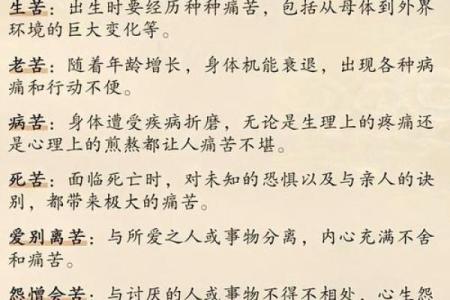 生苦：出生时要经历种种痛苦，包括从母体到外界
环境的巨大变化等。
老苦：随着年龄增长，身体机能衰退，出现各种病
痛和行动不便。
病苦：身体遭受疾病折磨，无论是生理上的疼痛还
是心理上的煎熬都让人痛苦不堪。
死苦：面临死亡时，对未知的恐惧以及与亲人的诀
别，都带来极大的痛苦。
爱别离苦：与所爱之人或事物分离，内心充满不舍
和痛苦。
怨憎会苦：与讨厌的人或事物不得不相处，心生怨